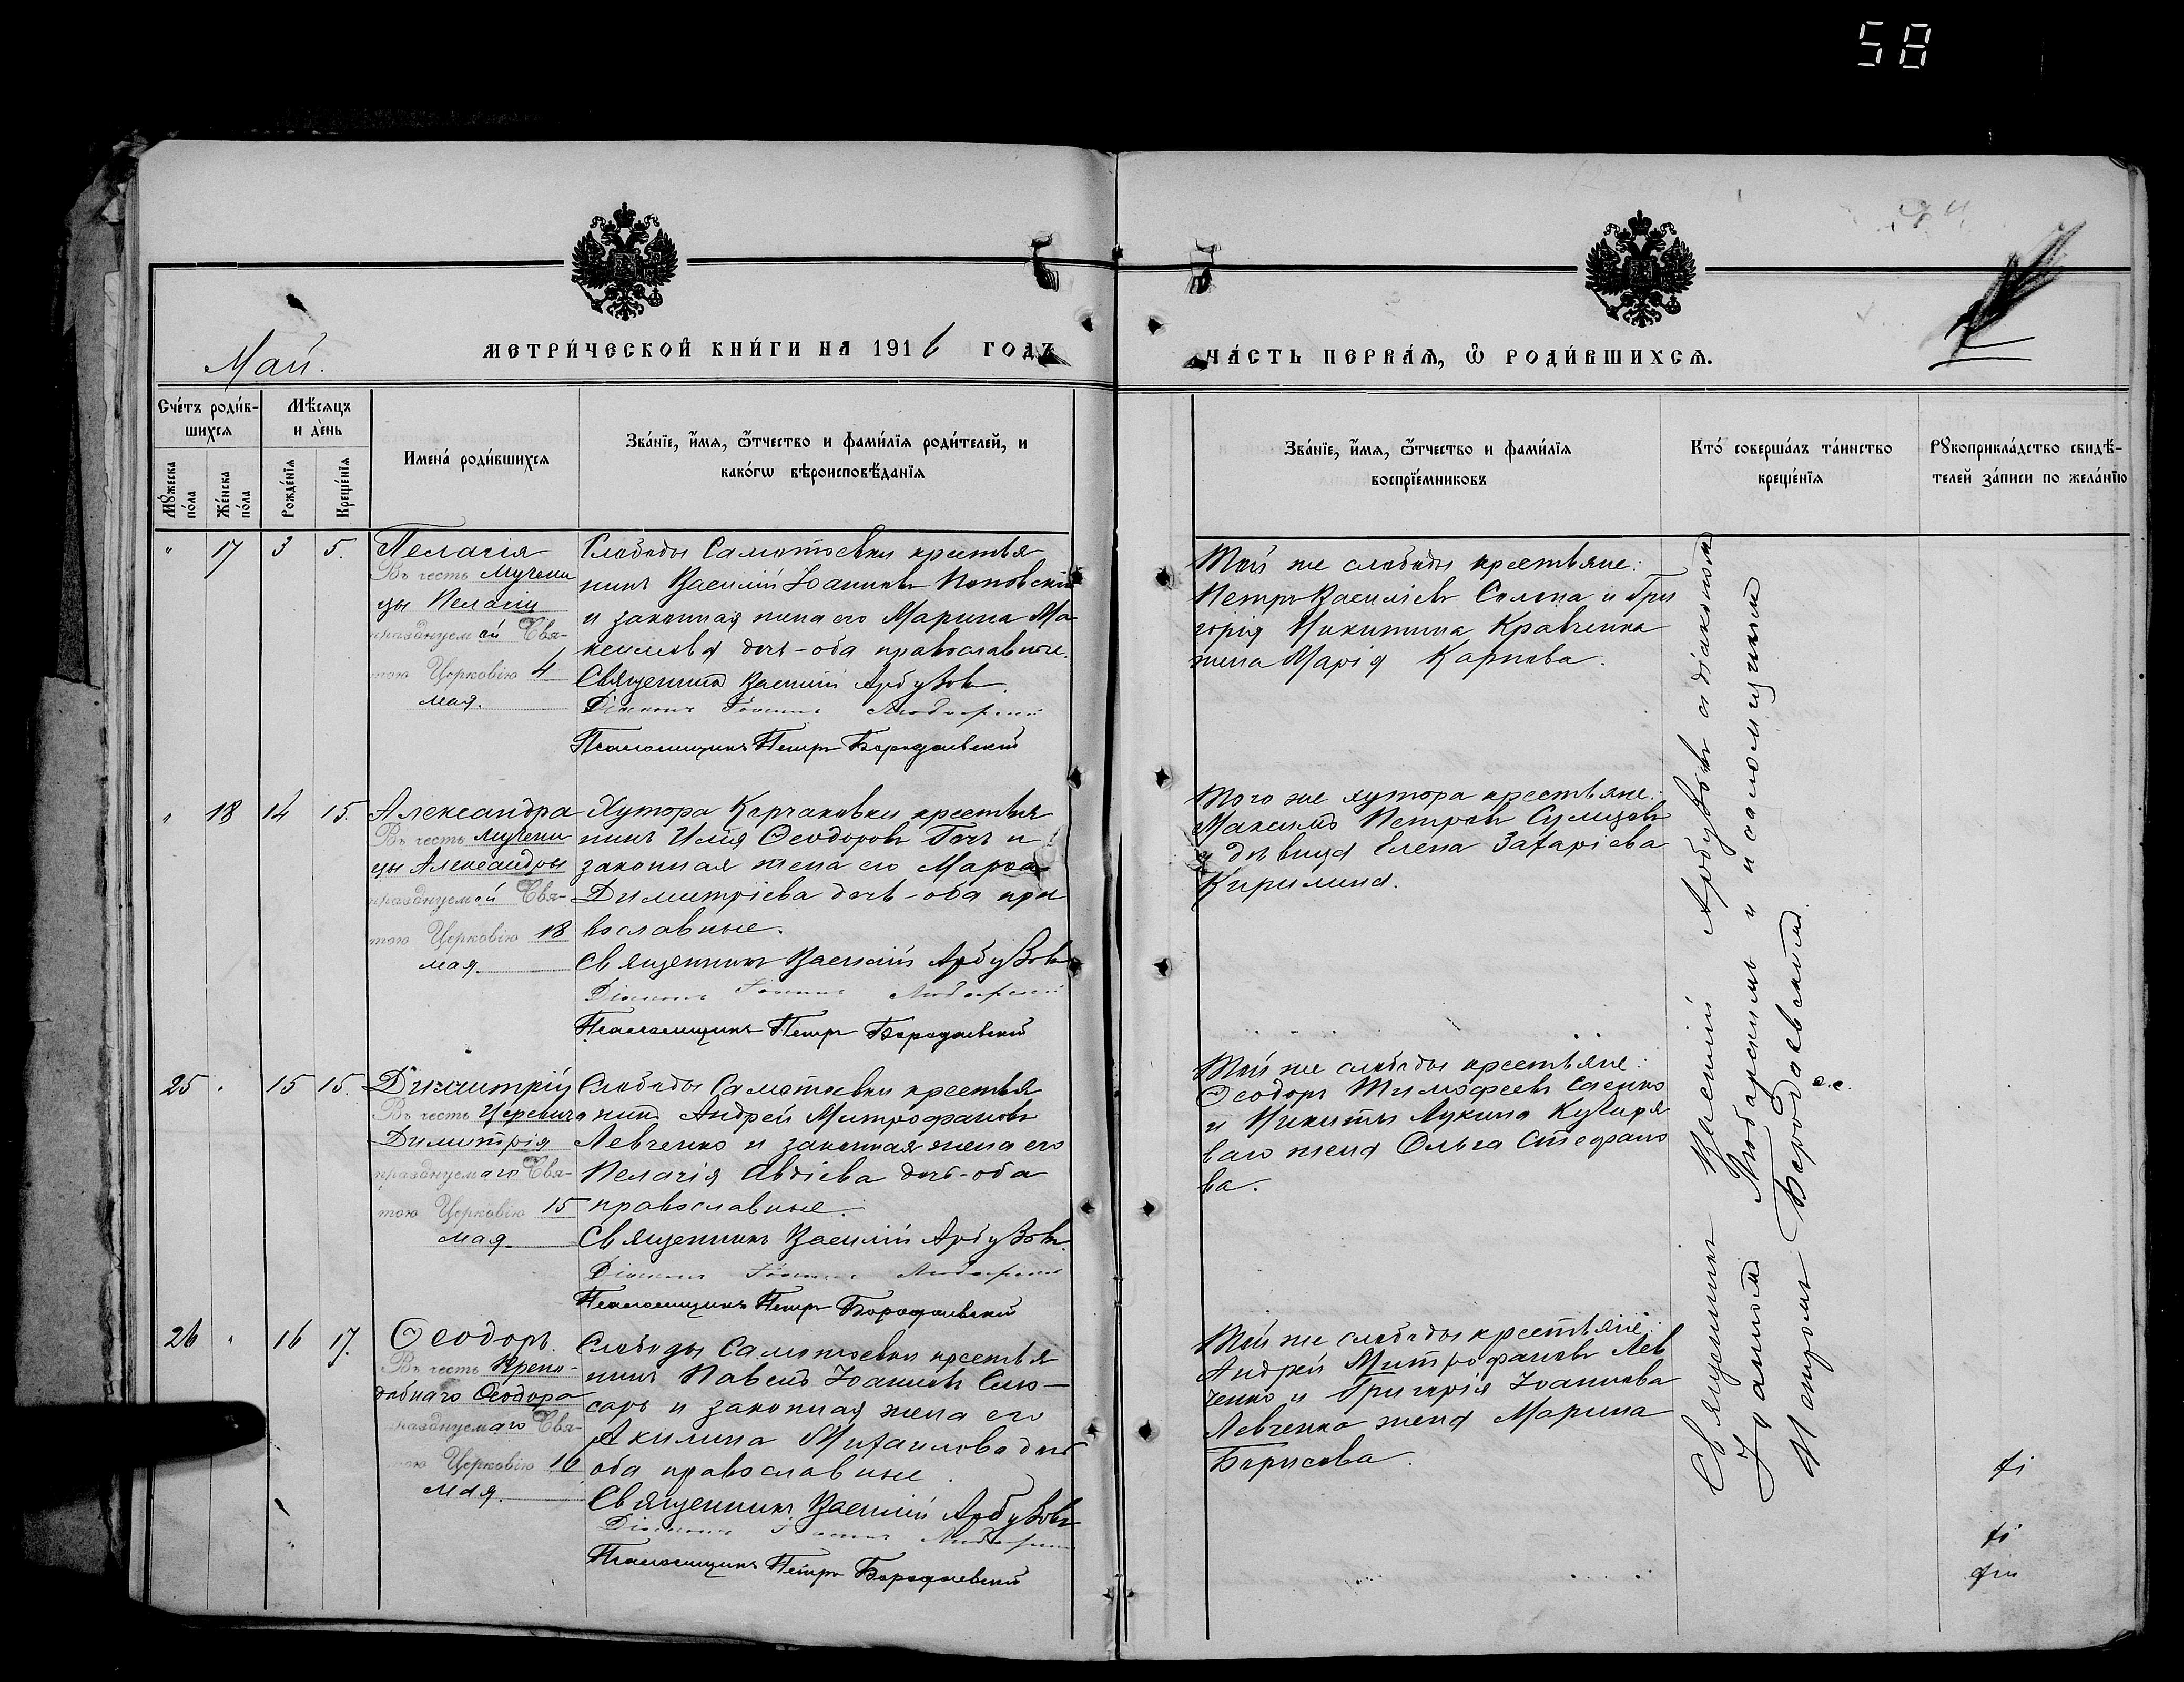 58
Май.
МЕТРИ́ЧЕСКОЙ КНИ́ГИ НА 1916 ГОДЪ
ЧА́СТЬ ПЕРВА́Я, Ѽ РОДИ́ВШИХСЯ.
Сче́тъ роди́в-
шихся
Мѣ́сяцъ
и де́нь
Мꙋ́жеска по́ла
Же́нска по́ла
Рожде́нїя
Креще́нїя
Имена́ роди́вшихся
Зва́нїе, и҆́мя, ѻ҆́тчество и фами́лїя роди́телей, и
како́гѡ вѣроисповѣ́данїя
Зва́нїе, и҆́мя, ѻ҆́тчество и фами́лїя
воспрїе́мниковъ
Кто́ соверша́лъ та́инство
креще́нїя
Рꙋкоприкла́дство свидѣ́-
телей за́писи по жела́нїю
" 17 3 5.
Пелагія
Въ честь мучени
цы Пелагіи
празднуемой Свя-
тою Церковію 4
мая.
Слободы Самотоевки крестья
нинъ Василій Іоанновъ Поповскій
и законная жена его Марина Ма
ксимова дочь - оба православные.
Священникъ Василій Арбузовъ.
Діаконъ Іоаннъ Любарскій
Псаломщикъ Петръ Бородаевскій
Той же слободы крестьяне:
Петръ Василіевъ Солопа и Гри
горія Никитина Кравченка
жена Марія Карпова.
" 18 14 15.
Александра
Въ честь мучени
цы Александры
празднуемой Свя-
тою Церковію 18
мая.
Хутора Корчаковки крестья
нинъ Илія Ѳеодоровъ Гочъ и
законная жена его Марѳа
Димитріева дочь - оба пра
вославные.
Священникъ Василій Арбузовъ
Діаконъ Іоаннъ Любарскій
Псаломщикъ Петръ Бородаевскій
Того же хутора крестьяне:
Максимъ Петровъ Сумцовъ
и девица Елена Захаріева
Кирилина.
25 " 15 15.
Димитрій
Въ честь Царевича
Димитрія
празднуемаго Свя-
тою Церковію 15
мая.
Слободы Самотоевки крестья
нинъ Андрей Митрофановъ
Левченко и законная жена его
Пелагія Авдіева дочь - оба
православные.
Священникъ Василій Арбузовъ.
Діаконъ Іоаннъ Любарскій
Псаломщикъ Петръ Бородаевскій
Той же слободы крестьяне:
Ѳеодоръ Тимофеевъ Саенко
и Никиты Лукина Кучеря
ваго жена Ольга Стефано
ва.
26 " 16 17.
Ѳеодоръ.
Въ честь Препо-
добнаго Ѳеодора
празднуемаго Свя-
тою Церковію 16
мая.
Слободы Самотоевки крестья
нинъ Павелъ Іоанновъ Слю-
сарь и законная жена его
Акилина Михаилова дочь
оба православные.
Священникъ Василій Арбузовъ
Діаконъ Іоаннъ Любарскій
Псаломщикъ Петръ Бородаевскій
Той же слободы крестьяне:
Андрей Митрофановъ Лев
ченко и Григорія Іоаннова
Левченко жена Марина
Борисова.
Священникъ Василій Арбузовъ съ діакономъ
Іоанномъ Любарскимъ и псаломщикомъ
Петромъ Бородаевскимъ.